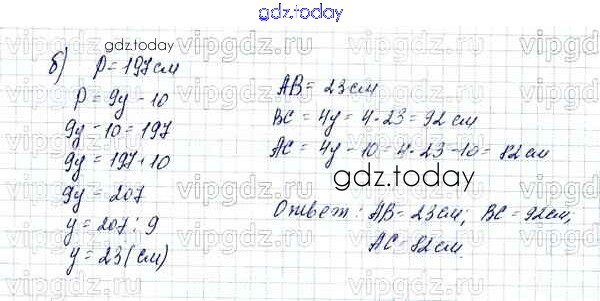 gdz.today
б) P = 197 см
gdz.today
P = 9y - 10
9y - 10 = 197
9y = 197 + 10
9y = 207
y = 207 : 9
y = 23 (см)
AB = 23 см
BC = 4y = 4 · 23 = 92 см
AC = 4y - 10 = 4 · 23 - 10 = 82 см
gdz.today
Ответ: AB = 23 см; BC = 92 см;
AC = 82 см.
vipgdz.ru